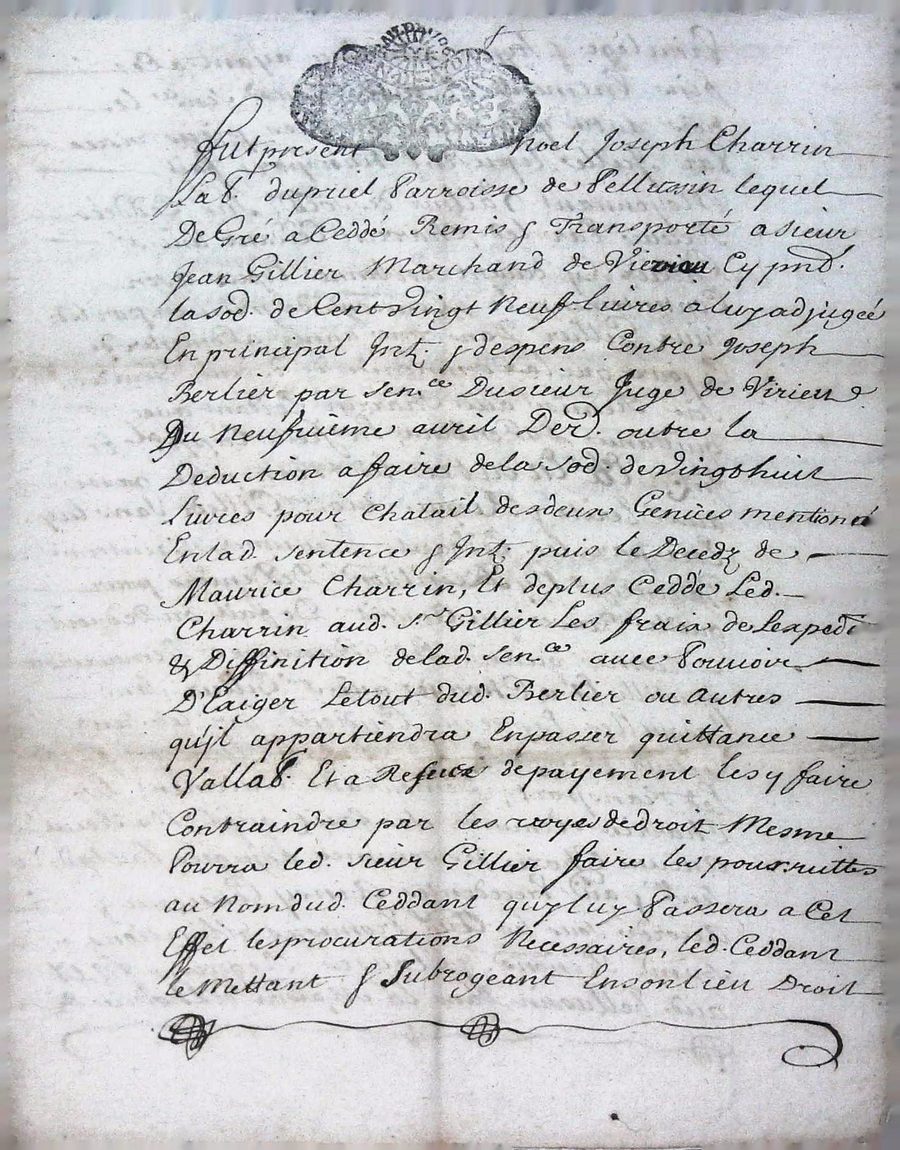 ffut present Noel Joseph Charrin
Lab. dupuiel Parroisse de Pellussin lequel
De Gré a Ceddé Remis & Transporté a sieur
Jean Gillier Marchand de Virieu Cy pnt.
la sod. de Cent Vingt Neuf Livres a luy adjugée
En principal Int. & despens Contre Joseph
Berlier par sen.ce Dusieur Juge de Virieu
Du Neufvieme avril Der. outre la
Deduction affaire dela sod. de Vingthuit
Livres pour Chatail desdeux Genices mentioné
Enlad. sentence & Int. puis le Decedz de
Maurice Charrin, Et deplus Cedde Led.
Charrin aud. sr. Gillier Les fraix de Lexpedi
& Diffinition delad. sen.ce avec Pouvoir
D'Exiger Letout dud. Berlier ou autres
qu'jl appartiendra Enpasser quittance
Vallab. Et a Refuz depayement les y faire
Contraindre par les voyes dedroit Mesme
Pourra led. sieur Gillier faire les poursuittes
au Nom dud. Ceddant quy luy Passera a Cet
Effet les procurations Necessaires, led. Ceddant
le Mettant & Subrogeant Ensonlieu Droit